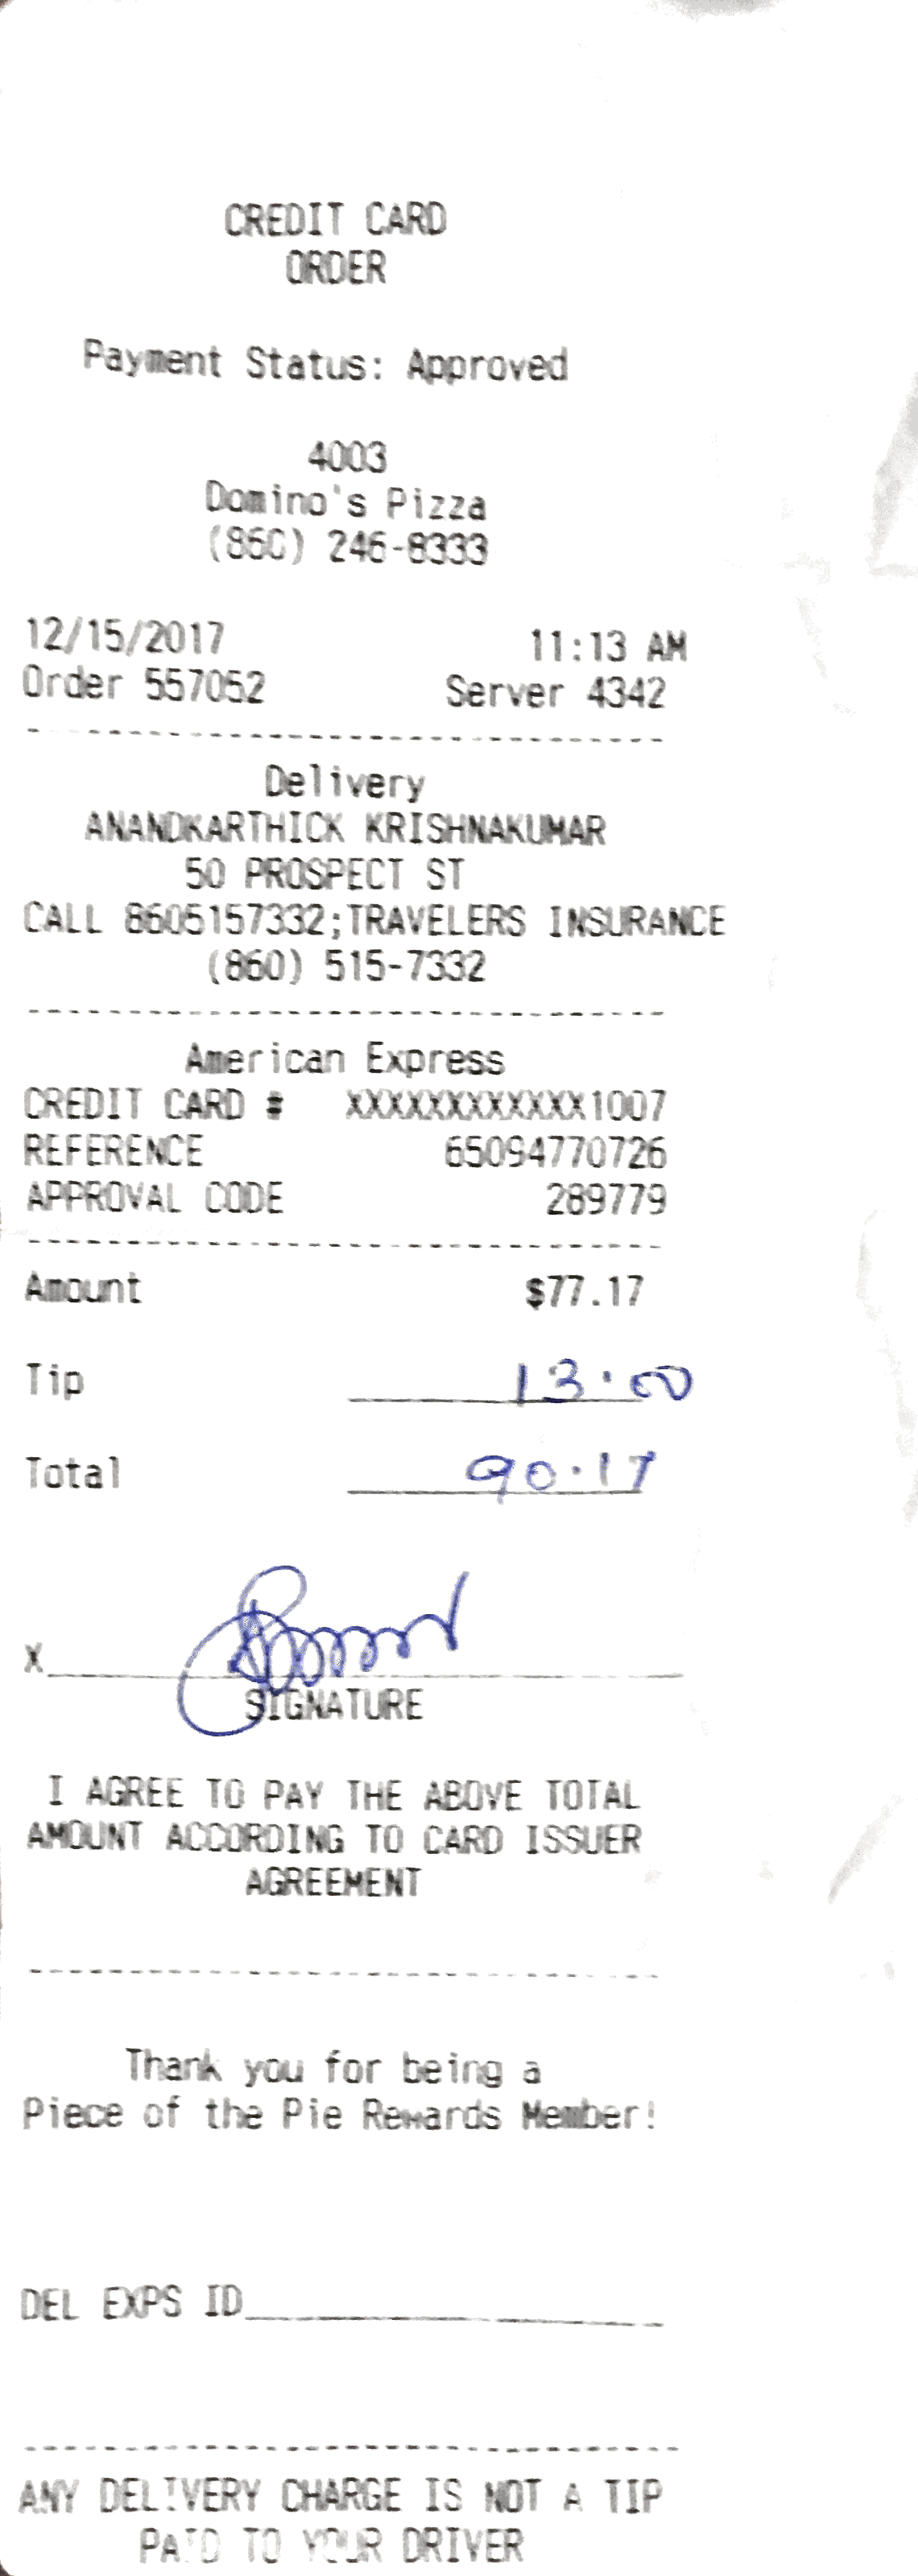 CREDIT CARD
ORDER
Payment Status: Approved
4003
Domino's Pizza
(860) 246-8333
12/15/2017 11:13 AM
Order 557052 Server 4342
Delivery
ANANDKARTHICK KRISHNAKUMAR
50 PROSPECT ST
CALL 8605157332;TRAVELERS INSURANCE
(860) 515-7332
American Express
CREDIT CARD # XXXXXXXXXXXX1007
REFERENCE 65094770726
APPROVAL CODE 289779
Amount $77.17
Tip 13.00
Total 90.17
X
SIGNATURE
I AGREE TO PAY THE ABOVE TOTAL
AMOUNT ACCORDING TO CARD ISSUER
AGREEMENT
Thank you for being a
Piece of the Pie Rewards Member!
DEL EXPS ID
ANY DELIVERY CHARGE IS NOT A TIP
PAID TO YOUR DRIVER